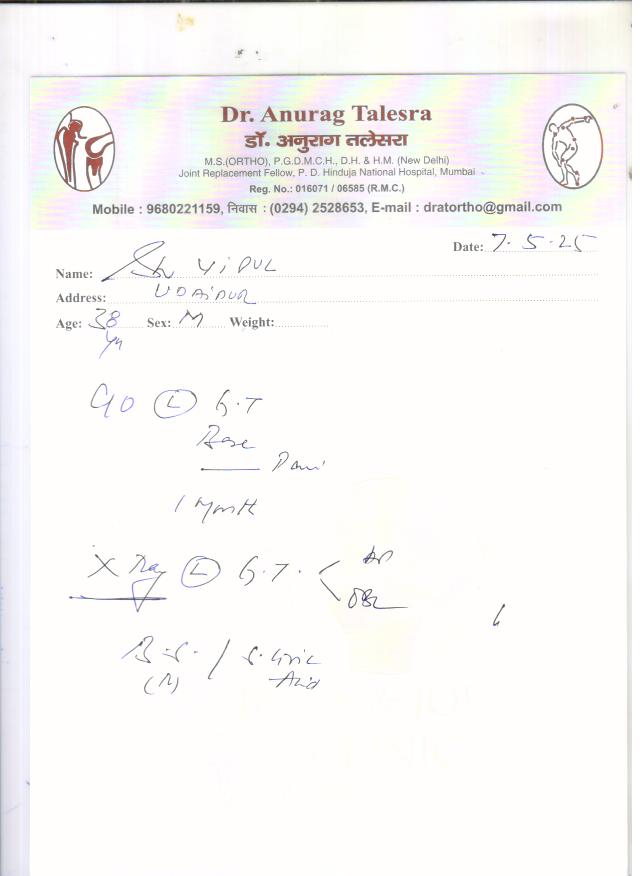 Dr. Anurag Talesra
डॉ. अनुराग तलेसरा
M.S.(ORTHO), P.G.D.M.C.H., D.H. & H.M. (New Delhi)
Joint Replacement Fellow, P. D. Hinduja National Hospital, Mumbai
Reg. No.: 016071 / 06585 (R.M.C.)
Mobile : 9680221159, निवास : (0294) 2528653, E-mail : dratortho@gmail.com
Date: 7.5.25
Name: Sh VIPUL
Address: UDAIPUR
Age: 38 Sex: M Weight:
yr
C/O (L) G.T
Base
Pain
1 Month
X Ray (L) G.T. < AP
OBL
B.S. / S. Uric
(R) Acid